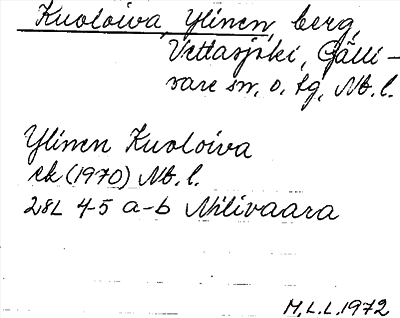 Kuoloiva, Ylinen, berg,
Vettasjoki, Gälli-
vare sn, o. tg, Nb. l.
Ylinen Kuoloiva
ek (1970) Nb. l.
28L 4-5 a-b Nilivaara
M.L.L. 1972